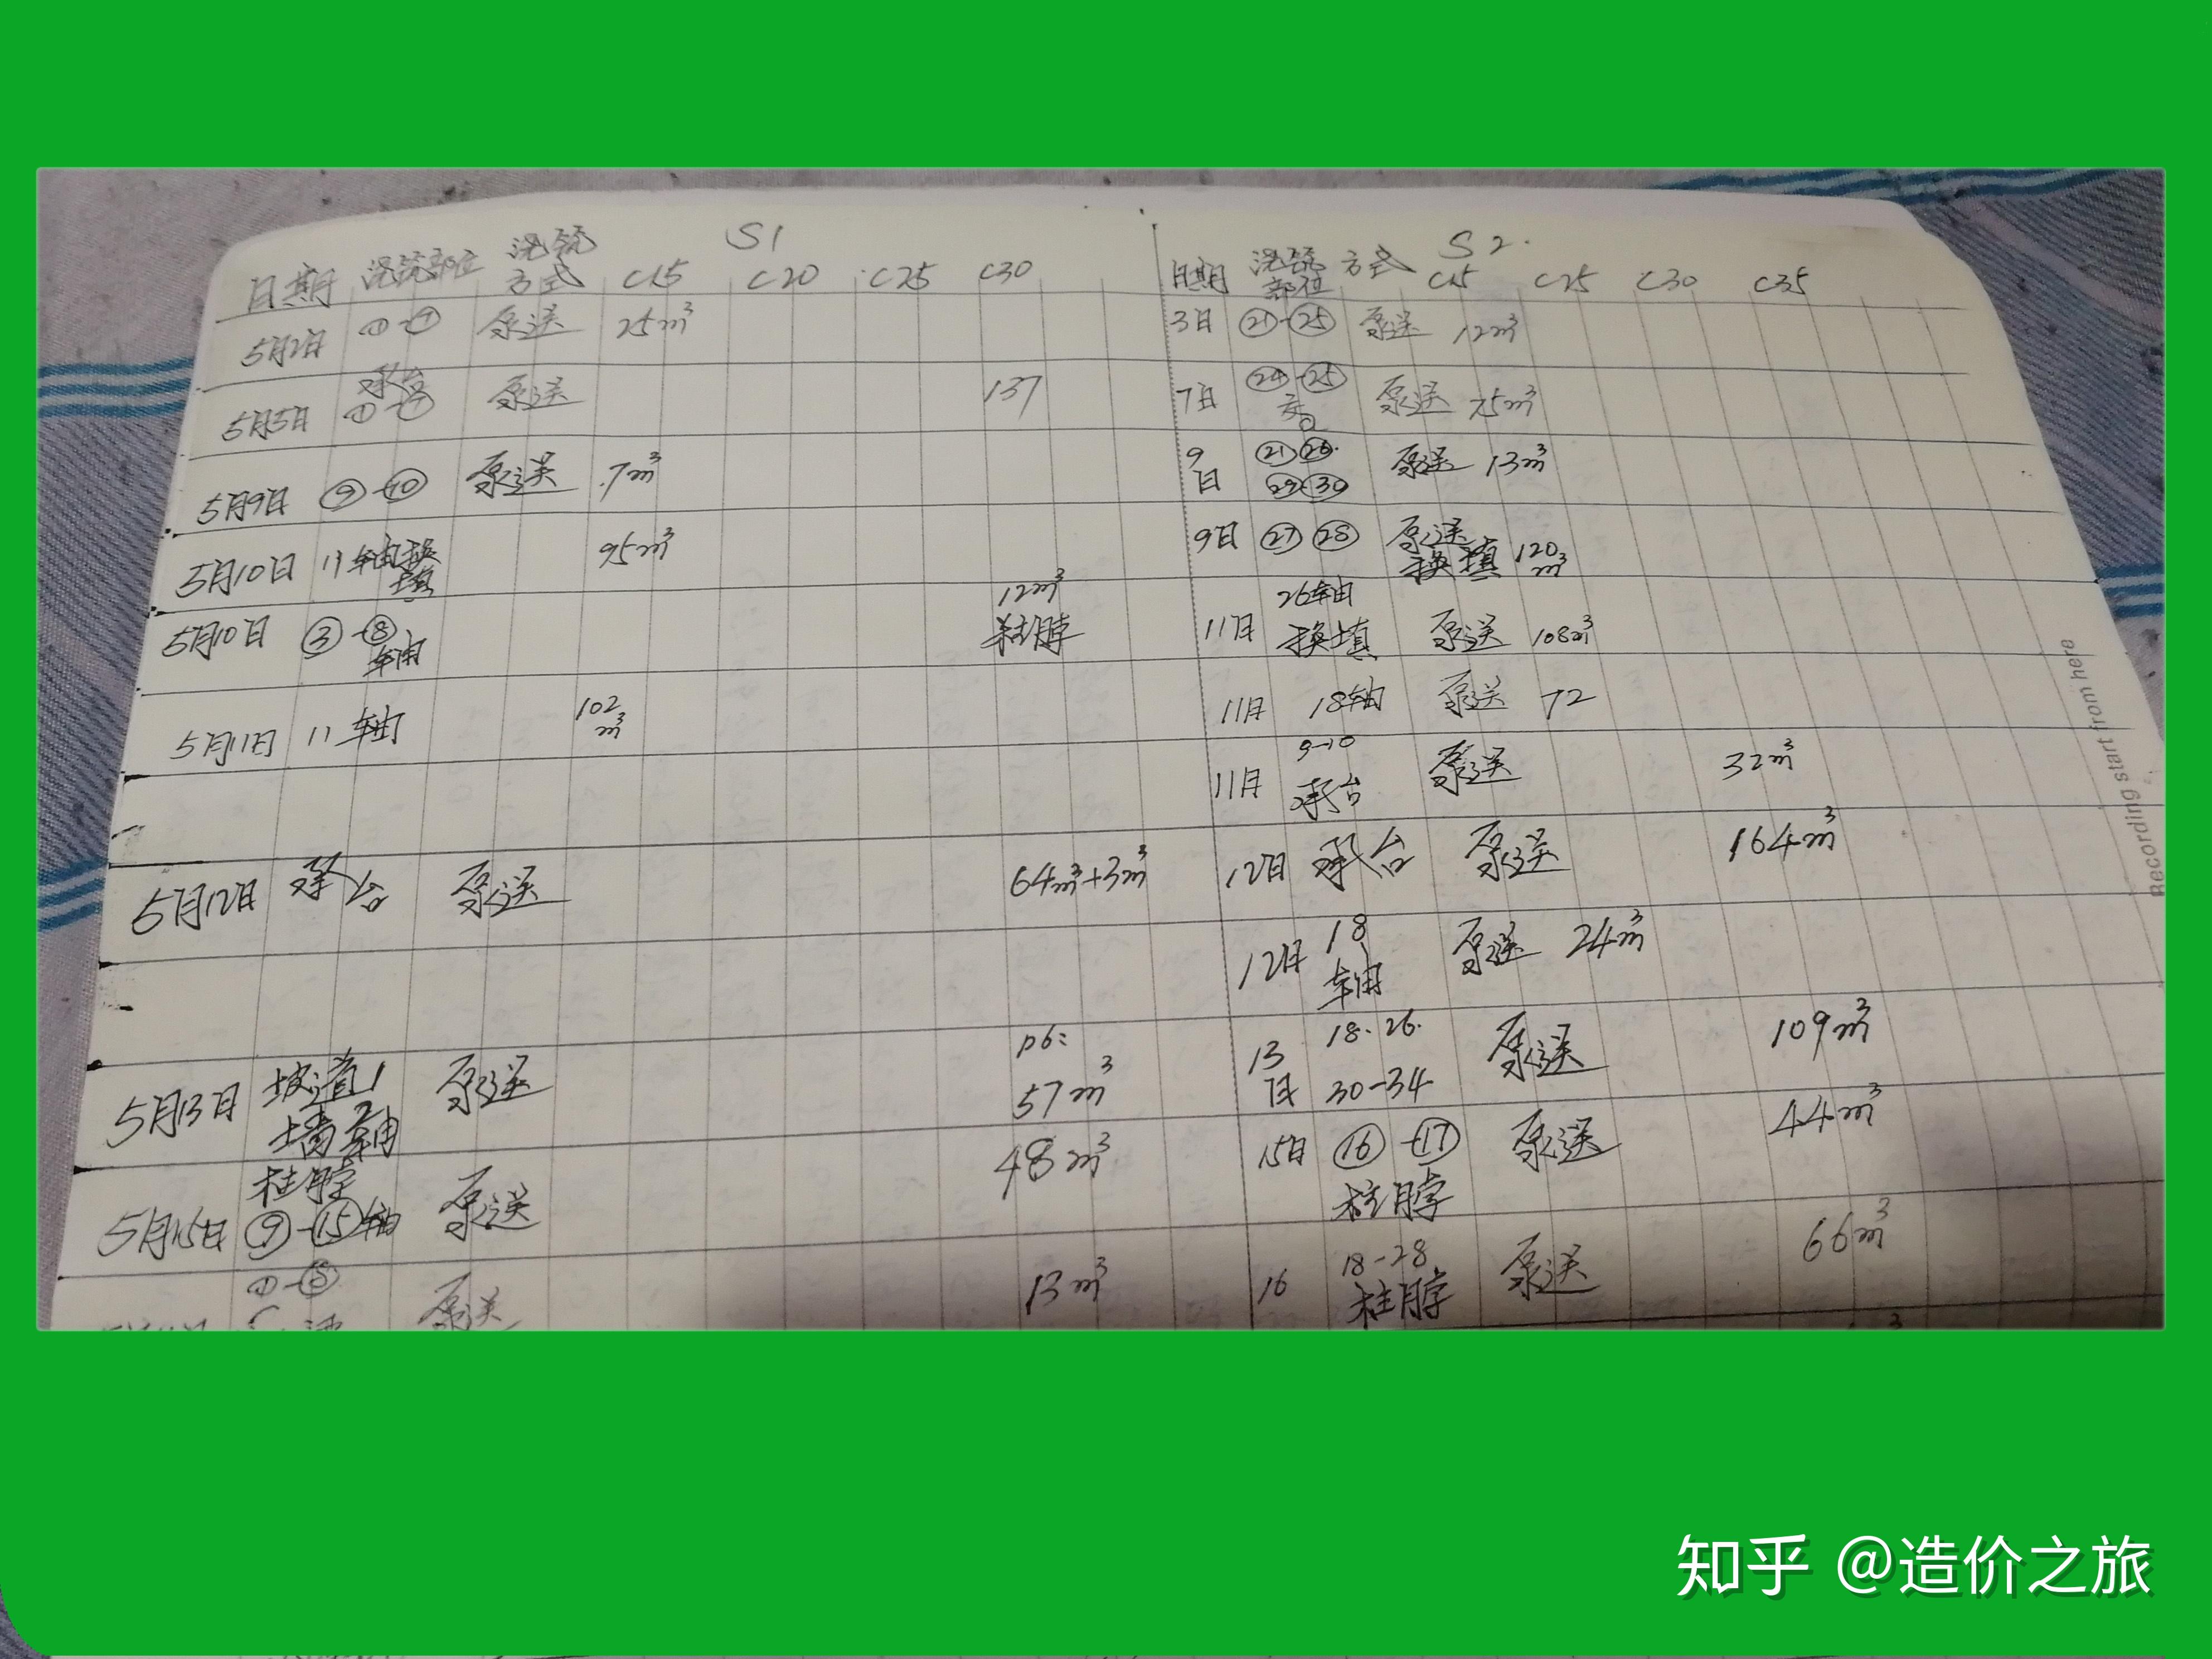 S1
日期 浇筑部位 浇筑方式 C15 C20 C25 C30
5月2日 ①-⑦ 泵送 25m³
5月5日 承台 ①-⑦ 泵送 137
5月9日 ⑨-⑩ 泵送 7m³
5月10日 11轴换填 95m³
5月10日 ③-⑧轴 12m³ 柱脖
5月11日 11轴 102m³
5月12日 承台 泵送 64m³+3m³
5月13日 坡道1墙 轴 泵送 p6: 57m³
5月15日 柱脖 ⑨-⑮轴 泵送 48m³
①-⑧ 泵送 13m³
S2.
日期 浇筑部位 方式 C15 C25 C30 C35
3日 ㉑-㉕ 泵送 12m³
7日 ㉔-㉕ 泵送 75m³
9日 ㉑ ㉙-㉚ 泵送 13m³
9日 ㉗ ㉘ 泵送 换填 120m³
11日 26轴换填 泵送 108m³
11日 18轴 泵送 72
11日 9-10 承台 泵送 32m³
12日 承台 泵送 164m³
12日 18轴 泵送 24m³
13日 18-26. 30-34 泵送 109m³
15日 ⑯-⑰ 柱脖 泵送 44m³
16 18-28 柱脖 泵送 66m³
Recording start from here
知乎 @造价之旅